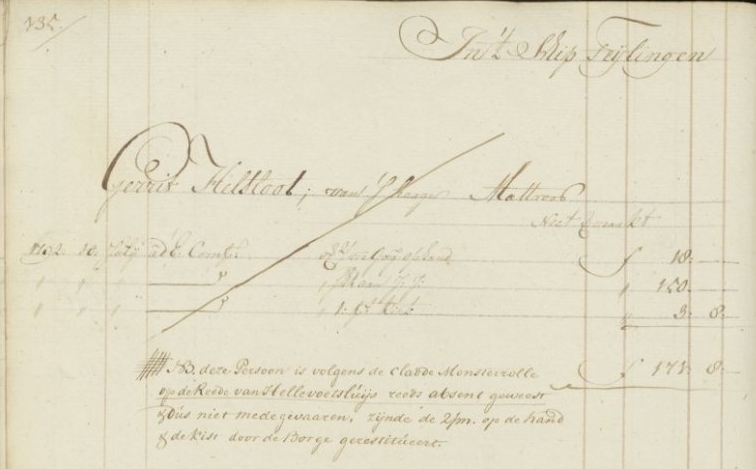 135.
In't Schip Teijlingen
Gerrit Hilstoot; van 's Haage Mattroos
Niet
1792. 10. Julij a d'E. Comp: op de hand f 18.
" " " " 150.
" " " " 1: kist " 3. 8.
f 171. 8.
NB. deze Persoon is volgens de cladde Monsterrolle
op de Reede van Hellevoetsluijs reeds absent geweest
& dus niet medegevaaren, zijnde de 2/m. op de hand
& de kist door de Borge gerestitueert.